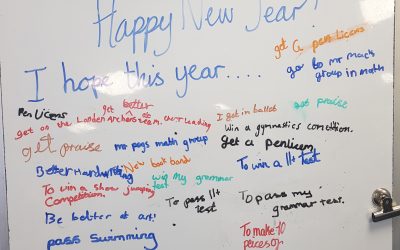 Happy New Year!
get a pen licens
I hope this year....
go to mr mack group in math
Pen Licens
get better
get on the London Archers team. at reading
I get in ballet
get praise
win a gymnastics competition.
get praise
mr pegs math group
get a penlicen.
Better Handwriting
New book band
To win a 11+ test
win my grammar test
To win a show jumping competition.
To pass 11+ test
To pass my grammar test.
Be better at art!
pass swimming
To make 10 peices of